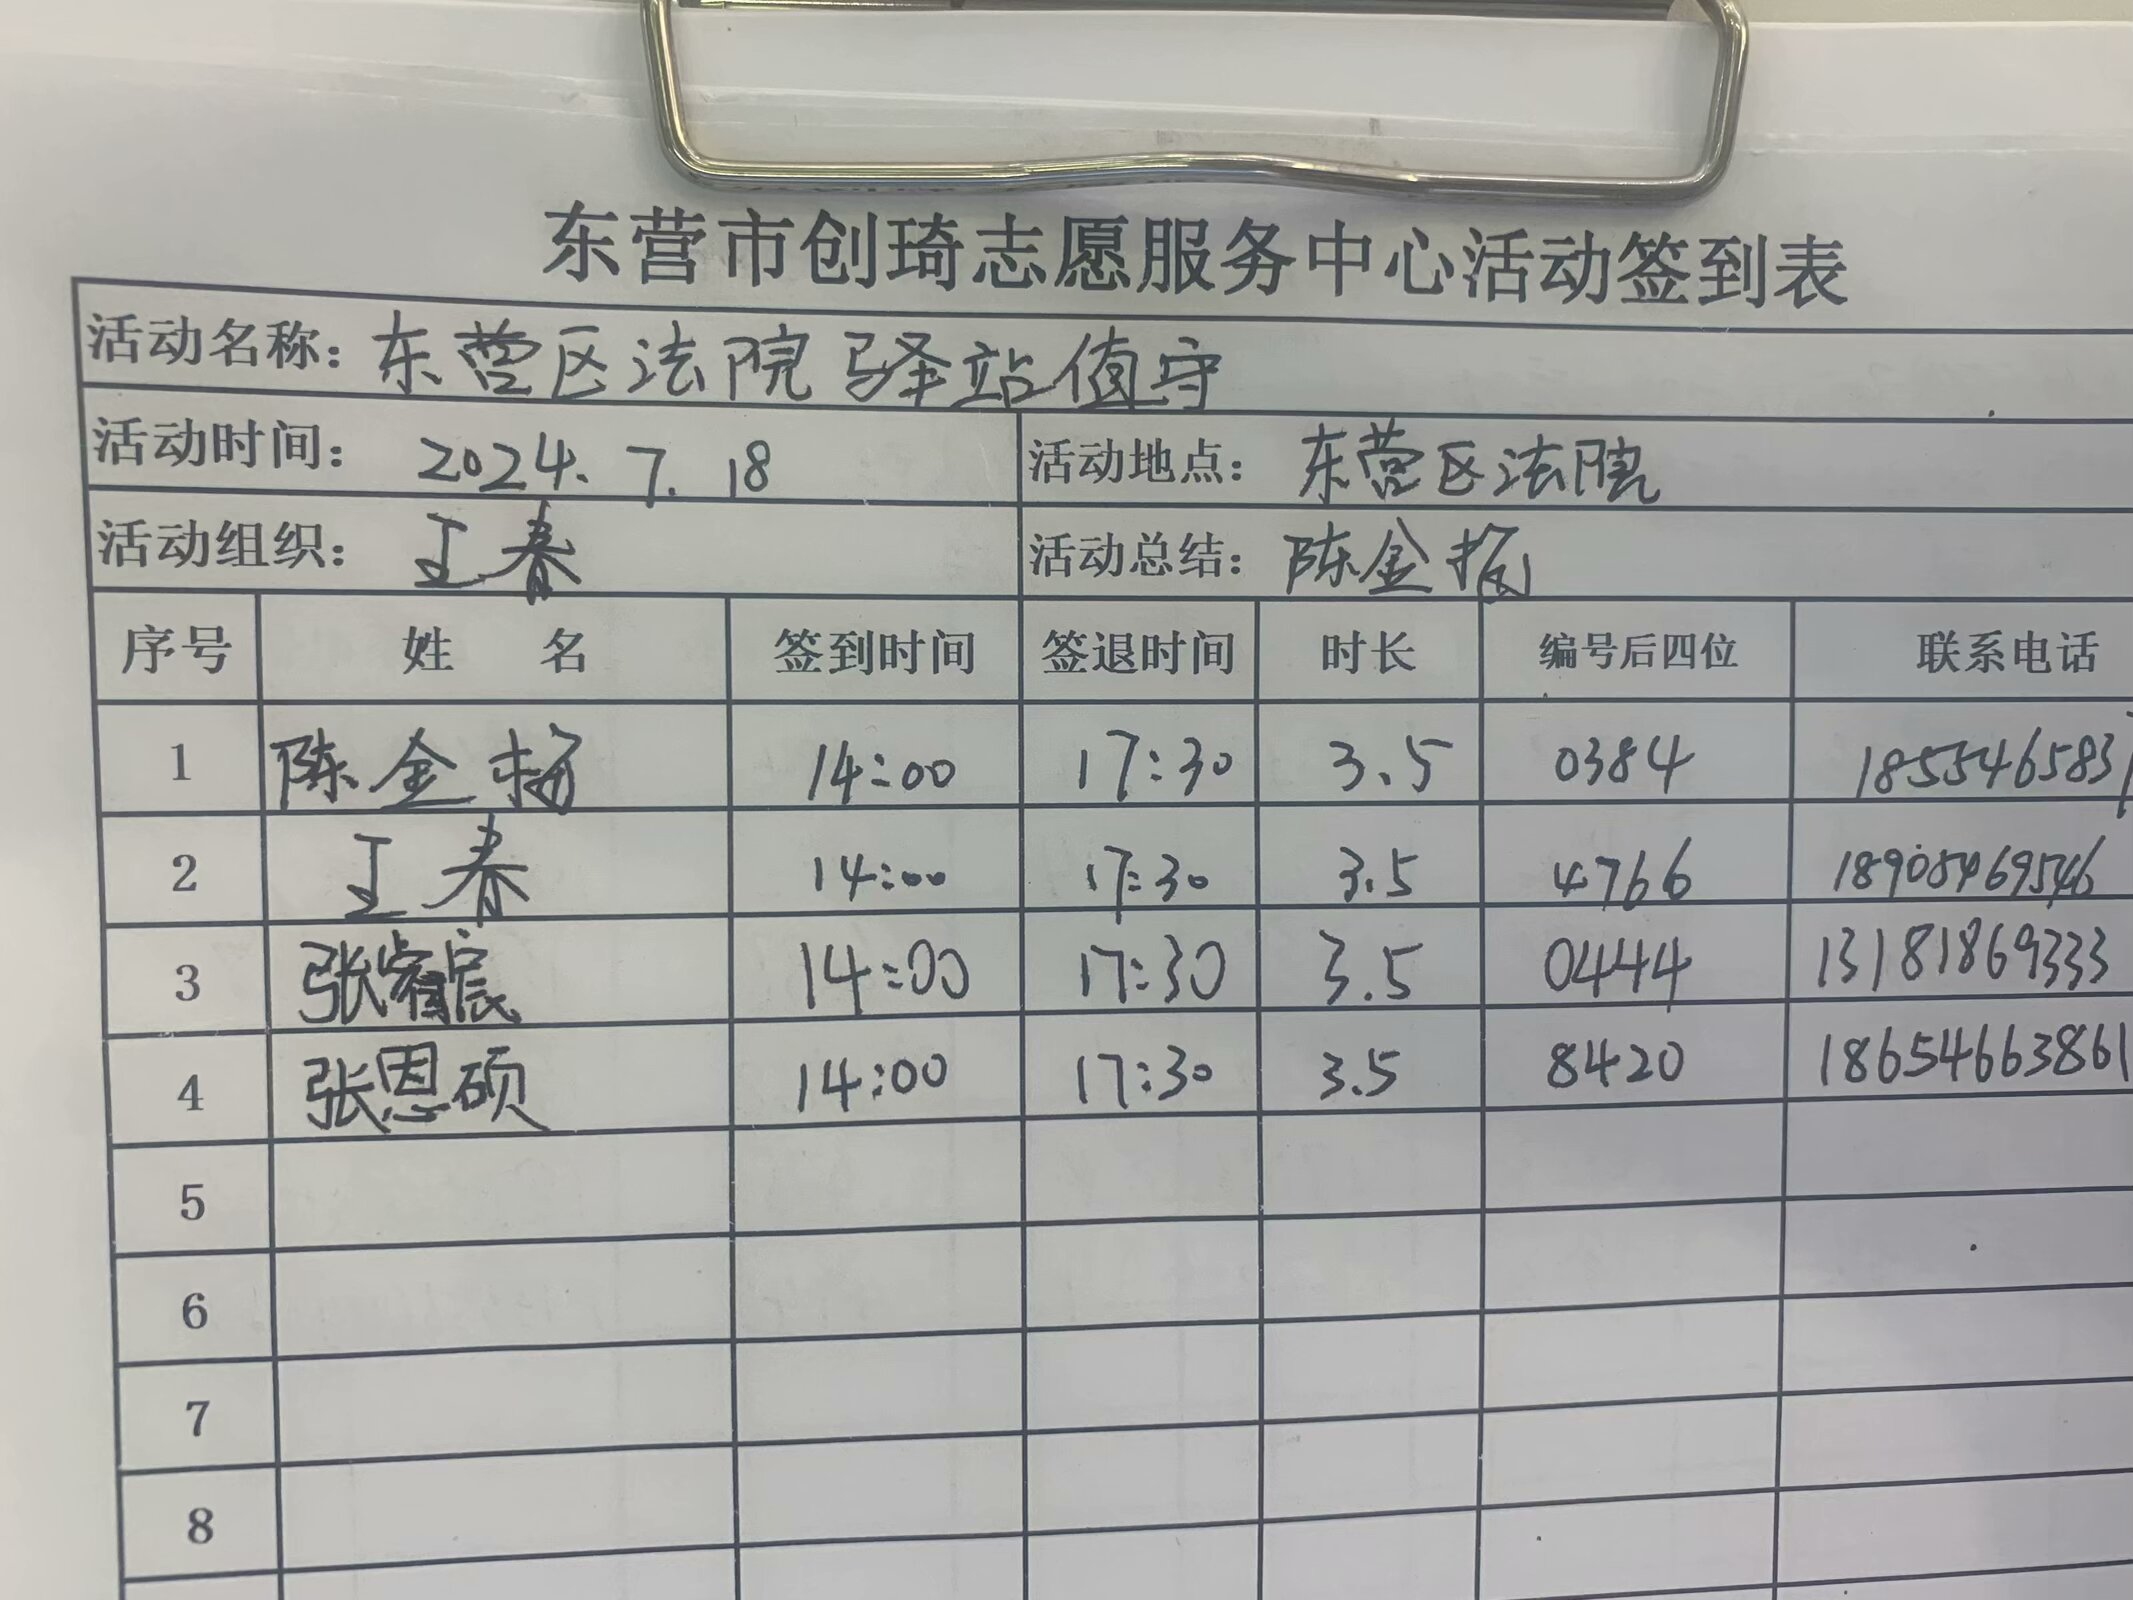 东营市创琦志愿服务中心活动签到表
活动名称：东营区法院驿站值守
活动时间：2024.7.18 活动地点：东营区法院
活动组织：王春 活动总结：陈金扬
序号 姓名 签到时间 签退时间 时长 编号后四位 联系电话
1 陈金扬 14:00 17:30 3.5 0384
2 王春 14:00 17:30 3.5 4766 18905469546
3 张睿宸 14:00 17:30 3.5 0444 13181869333
4 张恩硕 14:00 17:30 3.5 8420 18654663861
5
6
7
8